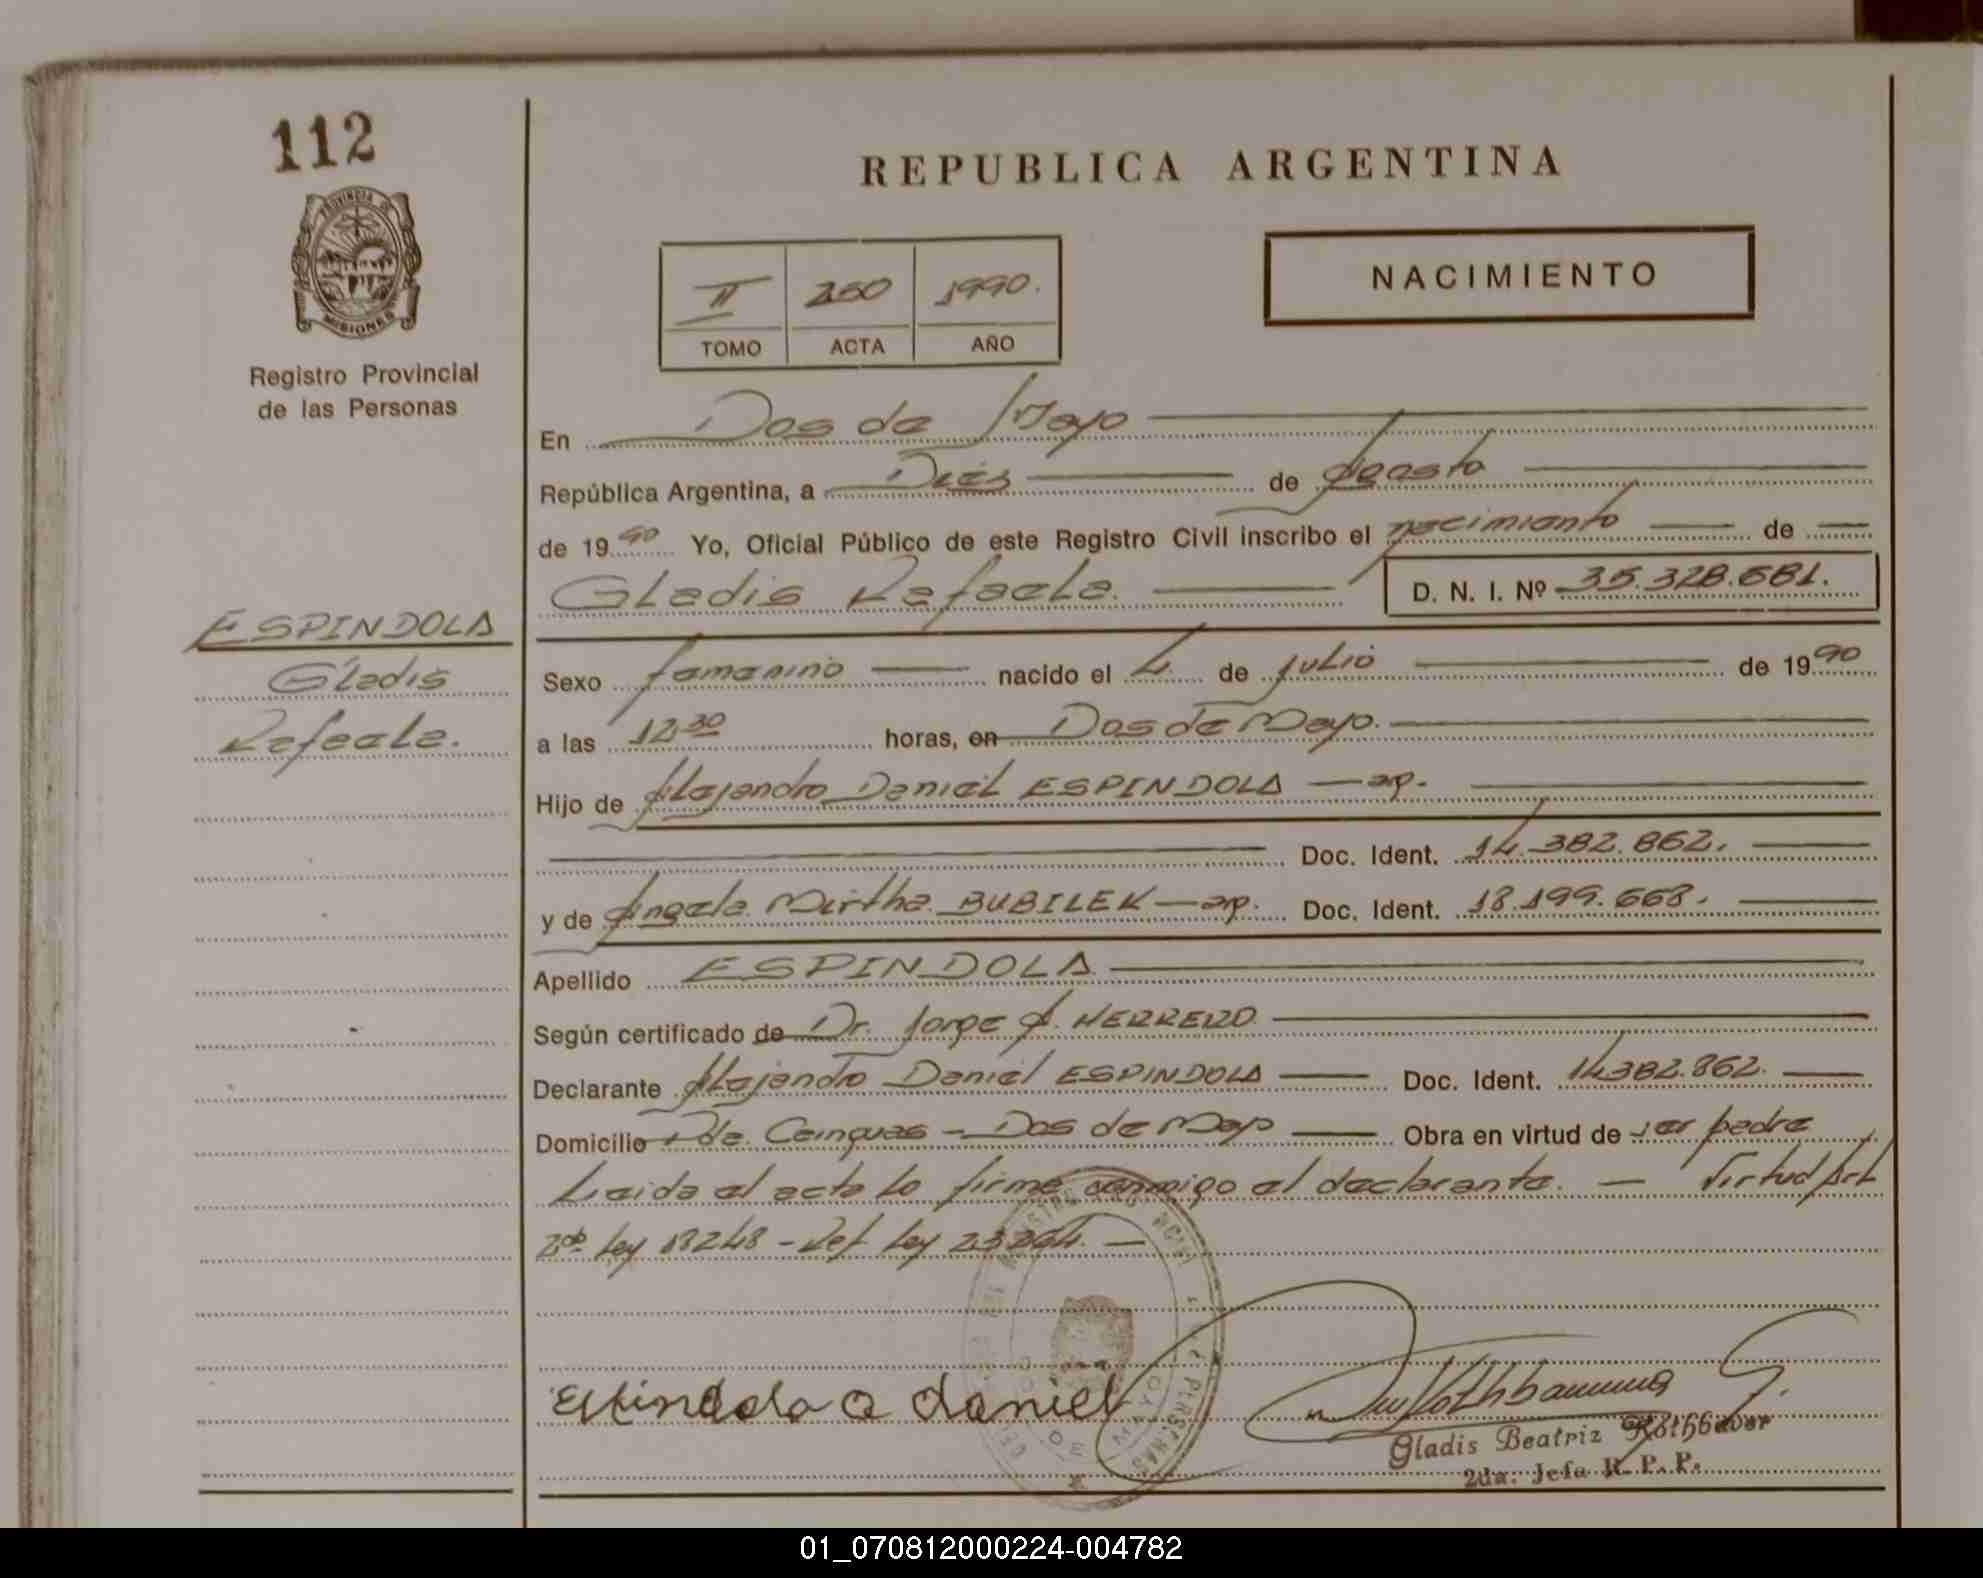 112
PROVINCIA DE
MISIONES
Registro Provincial
de las Personas
REPUBLICA ARGENTINA
NACIMIENTO
II 250 1990.
TOMO ACTA AÑO
En Dos de Mayo
República Argentina, a Diés de Agosto
de 1990 Yo, Oficial Público de este Registro Civil inscribo el nacimiento de
Gladis Rafaela. D. N. I. Nº 35.328.681.
ESPINDOLA
Gladis
Rafaela.
Sexo femenino nacido el 4 de julio de 1990
a las 12,30 horas, en Dos de Mayo.
Hijo de Alejandro Daniel ESPINDOLA — ap.
Doc. Ident. 14.382.862.
y de Angela Mirtha BUBILEK — ap. Doc. Ident. 18.199.668.
Apellido ESPINDOLA
Según certificado de Dr. Jorge A. HERRERO
Declarante Alejandro Daniel ESPINDOLA Doc. Ident. 14.382.862.
Domicilio Pde. Cainguas - Dos de Mayo Obra en virtud de ser padre
Leida el acta la firma conmigo el declarante. — Virtud Art
2do Ley 18248 - Ref Ley 23264. —
Espindola A daniel
Gladis Beatriz Rothbauer
2da. Jefa R. P. P.
01_070812000224-004782